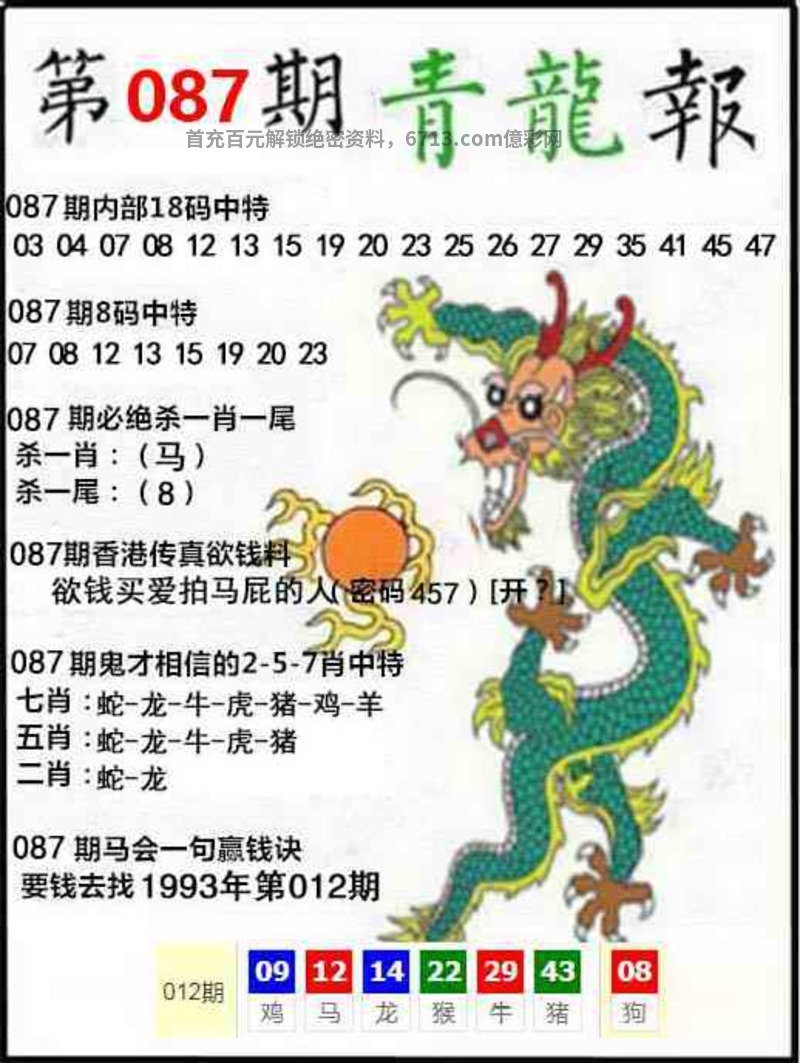 第087期青龍報
首充百元解锁绝密资料，6713.com億彩网
087期内部18码中特
03 04 07 08 12 13 15 19 20 23 25 26 27 29 35 41 45 47
087期8码中特
07 08 12 13 15 19 20 23
087期必绝杀一肖一尾
杀一肖：（马）
杀一尾：（8）
087期香港传真欲钱料
欲钱买爱拍马屁的人(密码457)[开？]
087期鬼才相信的2-5-7肖中特
七肖：蛇-龙-牛-虎-猪-鸡-羊
五肖：蛇-龙-牛-虎-猪
二肖：蛇-龙
087期马会一句赢钱诀
要钱去找1993年第012期
012期 09 12 14 22 29 43 08
鸡 马 龙 猴 牛 猪 狗